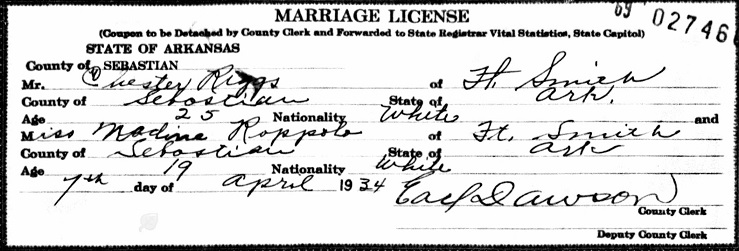 69 02746
MARRIAGE LICENSE
(Coupon to be Detached by County Clerk and Forwarded to State Registrar Vital Statistics, State Capitol)
STATE OF ARKANSAS
County of SEBASTIAN
Mr. Chester Riggs of Ft. Smith
County of Sebastian State of Ark.
Age 25 Nationality White and
Miss Madine Roppolo of Ft. Smith
County of Sebastian State of Ark
Age 19 Nationality White
7th day of April 1934 Earl Dawson
County Clerk
Deputy County Clerk